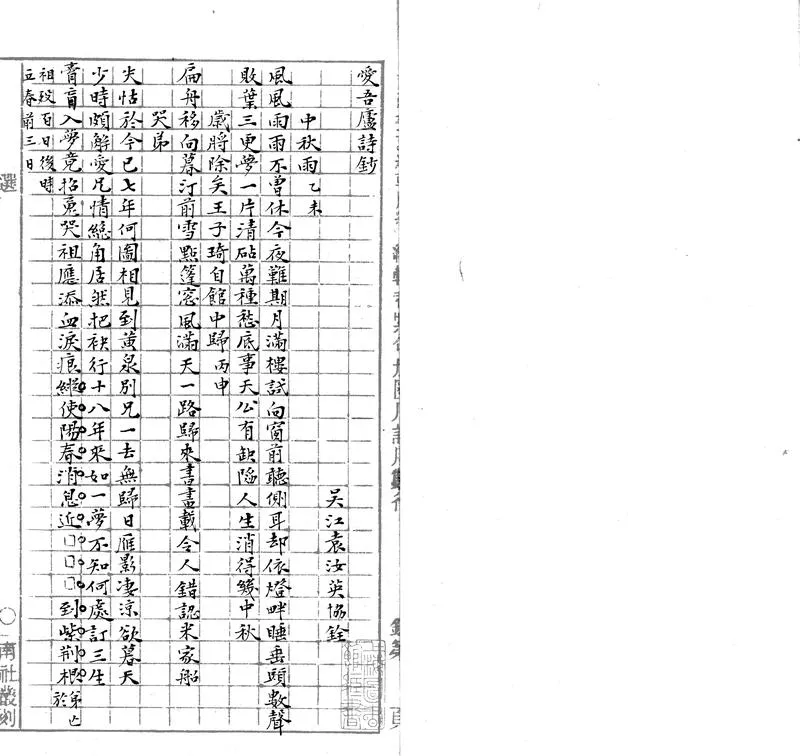 愛吾廬詩鈔
吳江袁汝英協銓
中秋雨乙未
風風雨雨不曾休今夜難期月滿樓試向窗前聽側耳却依燈畔睡垂頭數聲
敗葉三更夢一片清砧萬種愁底事天公有缺陷人生消得幾中秋
歲將除矣王子琦自館中歸丙申
扁舟移向暮汀前雪點篷窗風滿天一路歸來書畫載令人錯認米家船
哭弟
失怙於今已七年何圖相見到黃泉別兄一去無歸日雁影凄涼欲暮天
少時頗解愛兄情總角居然把袂行十八年來如一夢不知何處訂三生
膏肓入夢竟招䰟哭祖應添血淚痕縱使陽春消息近□□□到紫荊根弟亡於
祖歿百日後時
立春前三日
選
南社叢刻